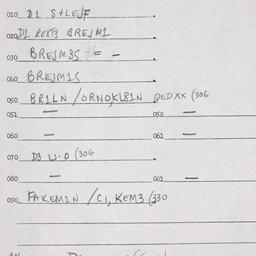 010 D1 S+LEJF
020 D1 REXT3 BREJM1
030 BREJM3S += -
040 BREJM1S
050 BR1LN /ORNOKL81N DEDXX (306
051 — 052 —
060 — 061 —
070 D3 U.O (306
080 — 081 —
090 FAKEM1N /C1, KEM3 (330